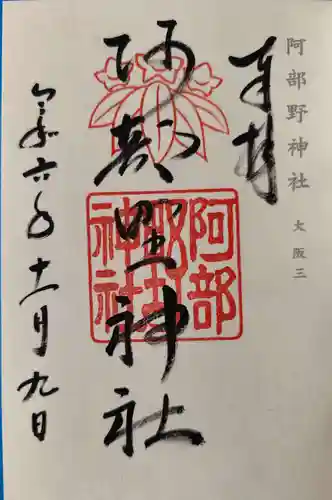 阿部野神社 大阪三
奉拝
阿部野神社
阿部野神社
令和六年十一月九日